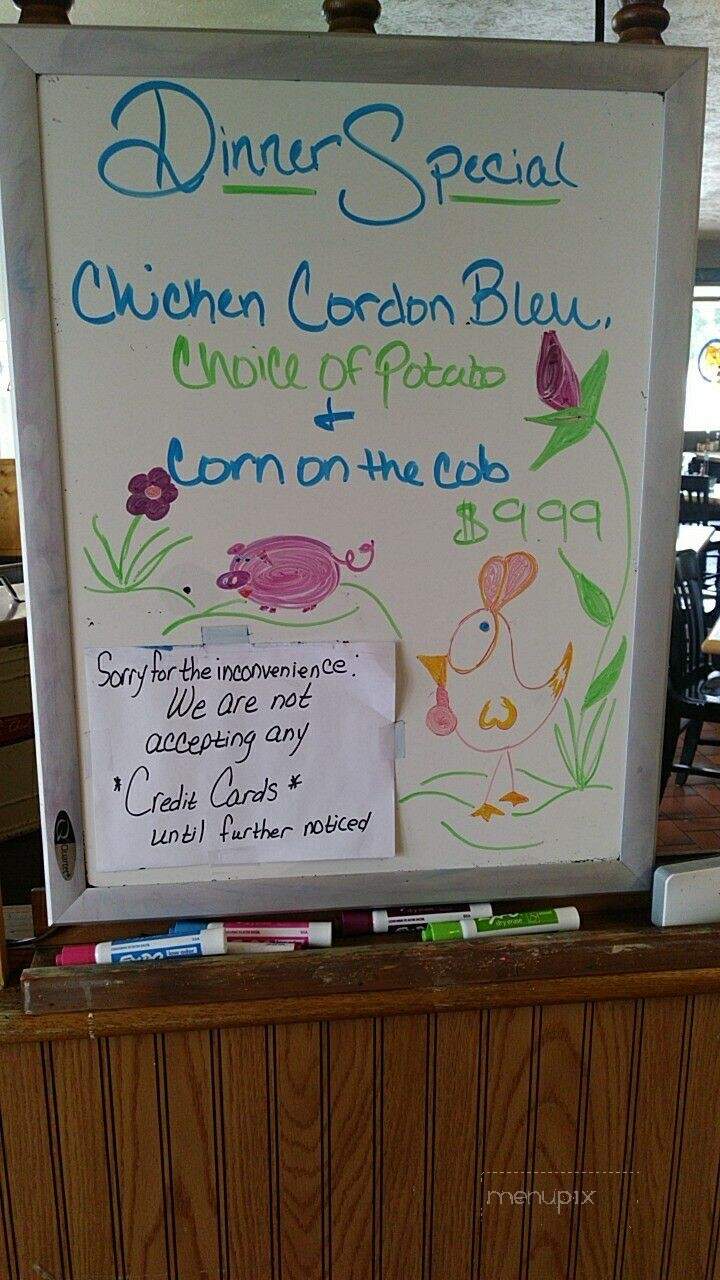 Dinner Special
Chicken Cordon Bleu.
Choice of Potato
+
Corn on the cob
$9.99
Sorry for the inconvenience:
We are not
accepting any
*Credit Cards*
until further noticed
Quartet
EXPO low odor
EXPO dry erase
menupix